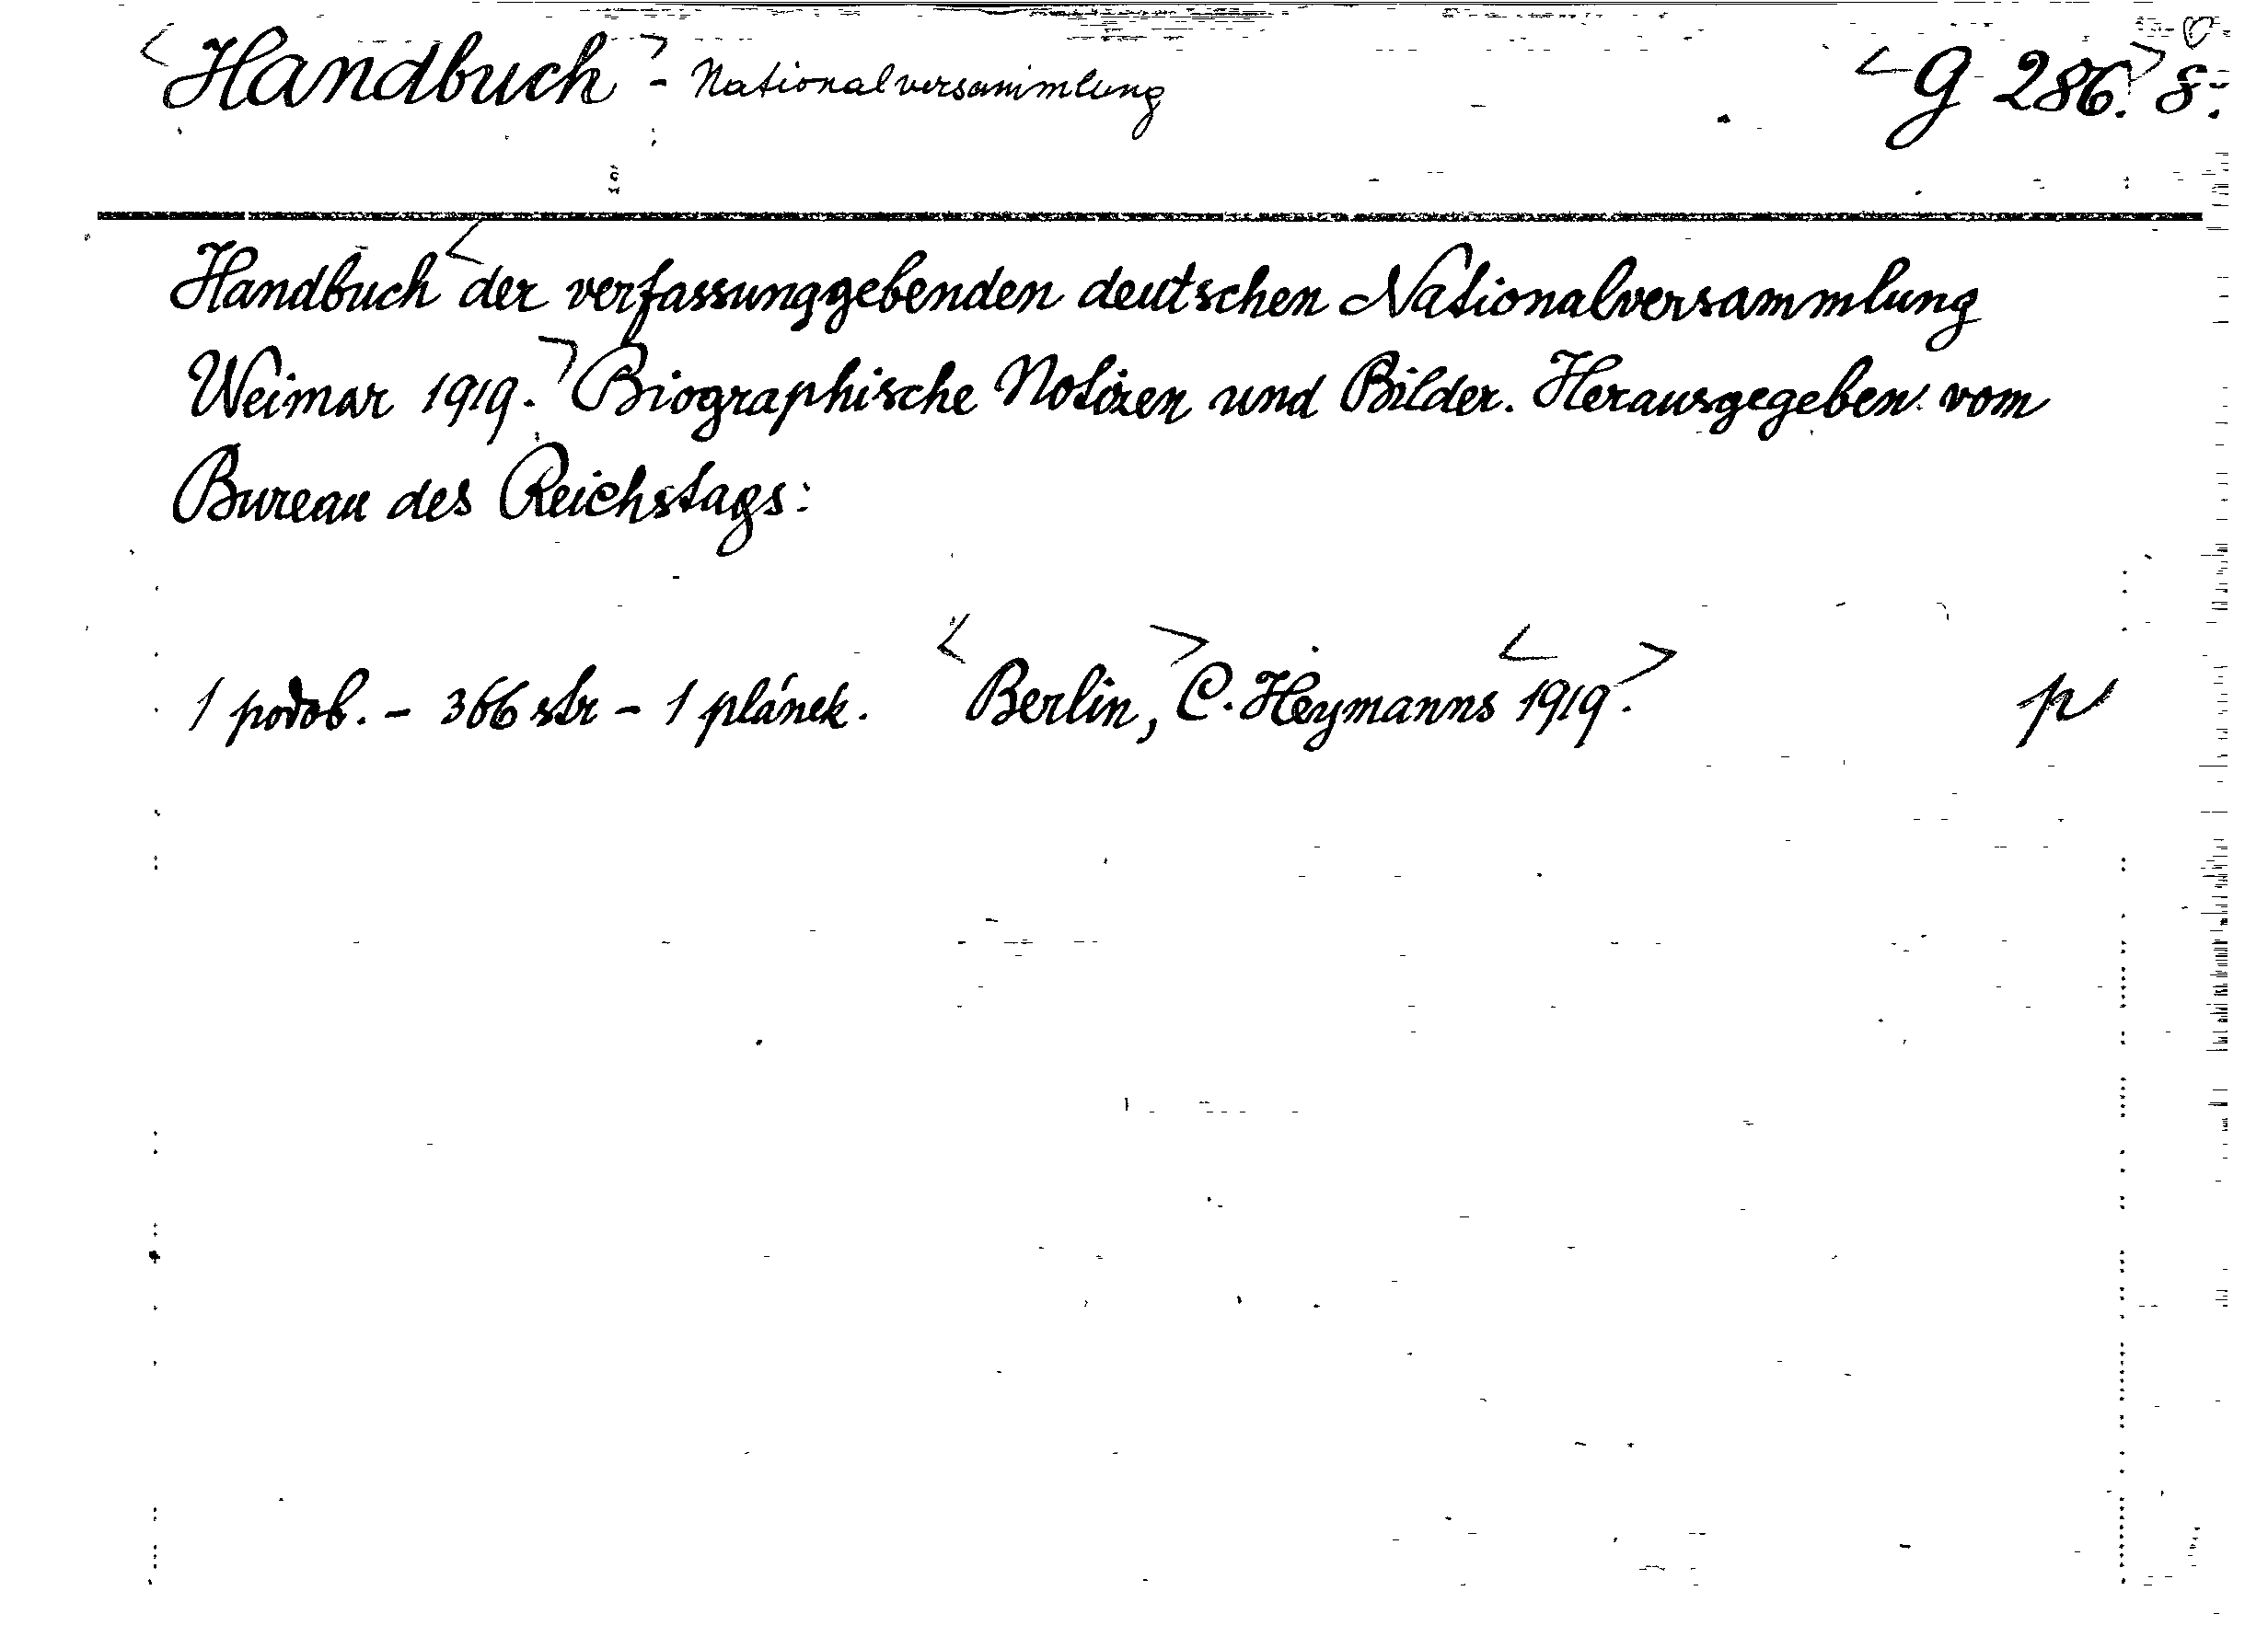 <Handbuch> - Nationalversammlung <G 286.> 8:
Handbuch <der verfassunggebenden deutschen Nationalversammlung
Weimar 1919.> Biographische Notizen und Bilder. Herausgegeben vom
Bureau des Reichstags:
1 podob. - 366 str - 1 plánek. <Berlin,> C. Heymanns <1919.>